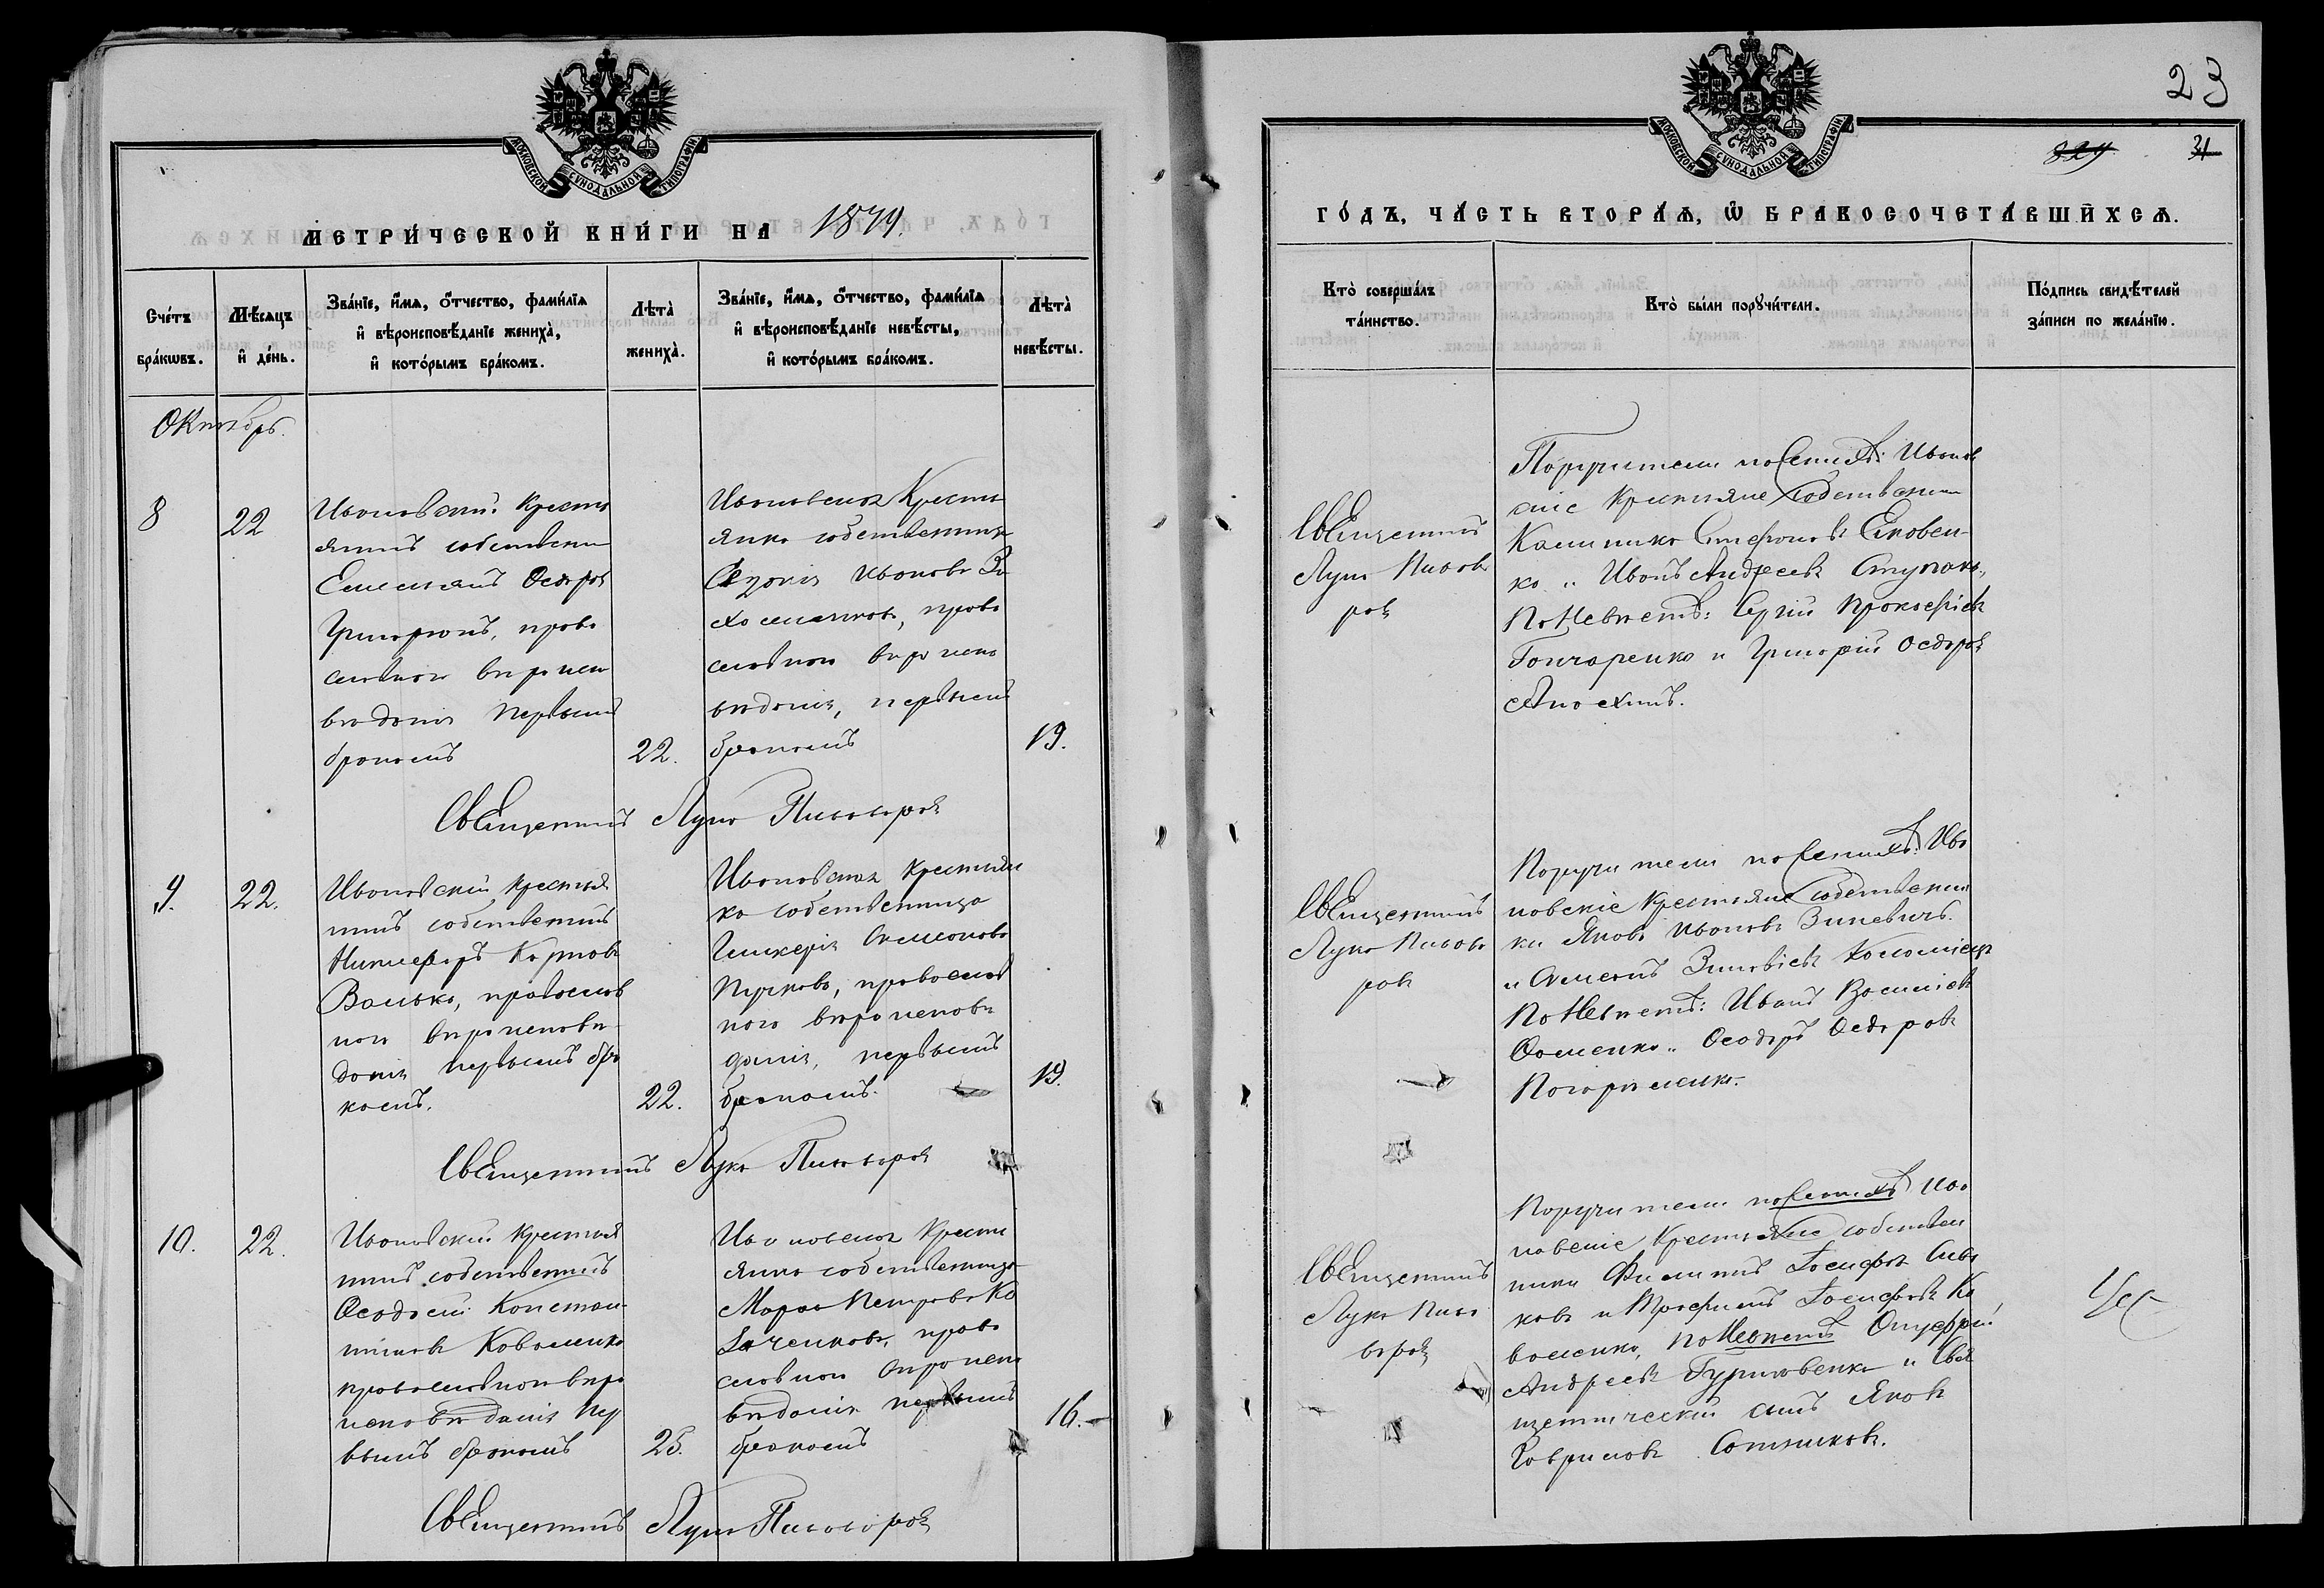 МОСКОВСКОЙ СУНОДАЛЬНОЙ ТИПОГРАФІИ
МЕТРИ́ЧЕСКОЙ КНИ́ГИ НА 1879.
Сче́тъ бра́кѡвъ.
Мѣ́сяцъ и҆ де́нь.
Зва́нїе, и҆́мѧ, ѻ҆́тчество, фамилїѧ
и҆ вѣроисповѣ́данїе жениха̀,
и҆ кото́рымъ бра́комъ.
Лѣ̀та
жениха̀.
Зва́нїе, и҆́мѧ, ѻ҆́тчество, фамилїѧ
и҆ вѣроисповѣ́данїе невѣ́сты,
и҆ кото́рымъ бра́комъ.
Лѣ̀та
невѣ́сты.
Октябрь.
8
22
Ивановскій крестья
янинъ собственн
Емельянъ Ѳедоров
Григорюкъ, право
славнаго вѣроиспо
вѣданія первымъ
бракомъ
22.
Ивановская Кресть
янка собственница
Евдокія Иванова
, право
славнаго вѣроиспо
вѣданія, первымъ
бракомъ
19.
Священникъ Лука Пивоваров
9.
22.
Ивановскій крестья
нинъ собственникъ
Никифоръ Карпов
Валько, православ
наго вѣроисповѣ
данія первымъ бра
комъ.
22.
Ивановская крестьян
ка собственница
Гликерія Симеонова
Пучкова, православ
наго вѣроисповѣ
данія, первымъ
бракомъ.
19.
Священникъ Лука Пивоваров
10.
22.
Ивановскій крестья
нинъ собственникъ
Ѳеодосій Констан
тинов Коваленко
православнаго вѣро
исповѣданія пер
вымъ бракомъ
25.
Ивановская Кресть
янка собственница
Марѳа Петрова Ко
заченкова, право
славнаго вѣроиспо
вѣданія первымъ
бракомъ
16.
Священникъ Лука Пивоваров
23
829
31
МОСКОВСКОЙ СУНОДАЛЬНОЙ ТИПОГРАФІИ
ГО́ДЪ, ЧА́СТЬ ВТОРА́Ѧ, Ѽ БРАКОСОЧЕТА́ВШИХСѦ.
Кто̀ соверша́лъ
та́инство.
Кто̀ бы́ли порꙋчи́тели.
По́дпись свидѣ́телей
за́писи по жела́нїю.
Священникъ
Лука Пивова
ров
Поручители по женихѣ: Иванов
скіе крестьяне собственники
Калиника Стефанов Яковен-
ко и Иванъ Андреев Ступак.,
По Невѣстѣ: Сергій Прокофіев
Гончаренко и Григорій Ѳедоров
Священникъ
Лука Пивова
ров
Поручители по женихѣ: Ива
новскіе Крестьяне собственни
ки Яковъ Иванов Зиневичъ
и Симеонъ Зиновіев Коломіецъ
По Невѣстѣ: Иванъ Василіев
Ѳоменко и Ѳеодоръ Ѳедоров
Погориленко.
Священникъ
Лука Пиво
варов
Поручители по женихѣ Ива
новскіе Крестьяне собствен
ники Филиппъ Іосифов Сиво
ковъ и Трофимъ Іосифов Ко
валенко, по Невѣстѣ Онуфрій
Андреев и Свя
щенническій сынъ Яков
Гаврилов Сотников.